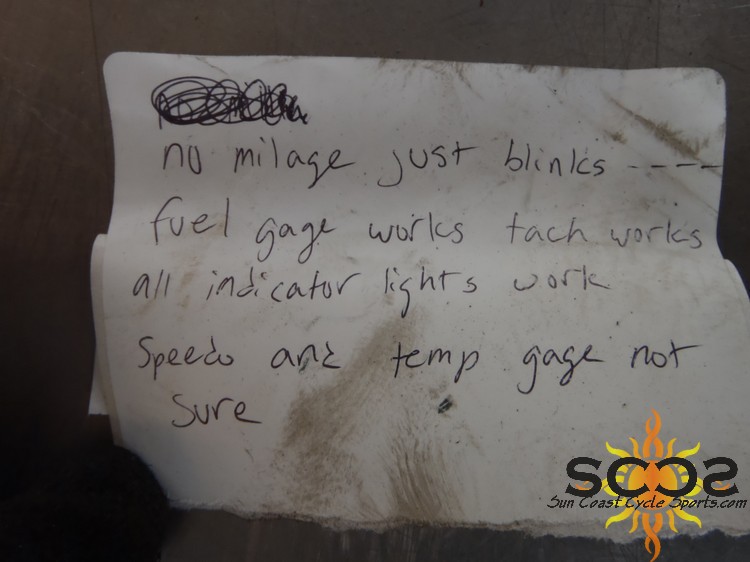 no milage just blinks -----
fuel gage works tach works
all indicator lights work
Speedo and temp gage not
sure
SCCS
Sun Coast Cycle Sports.com